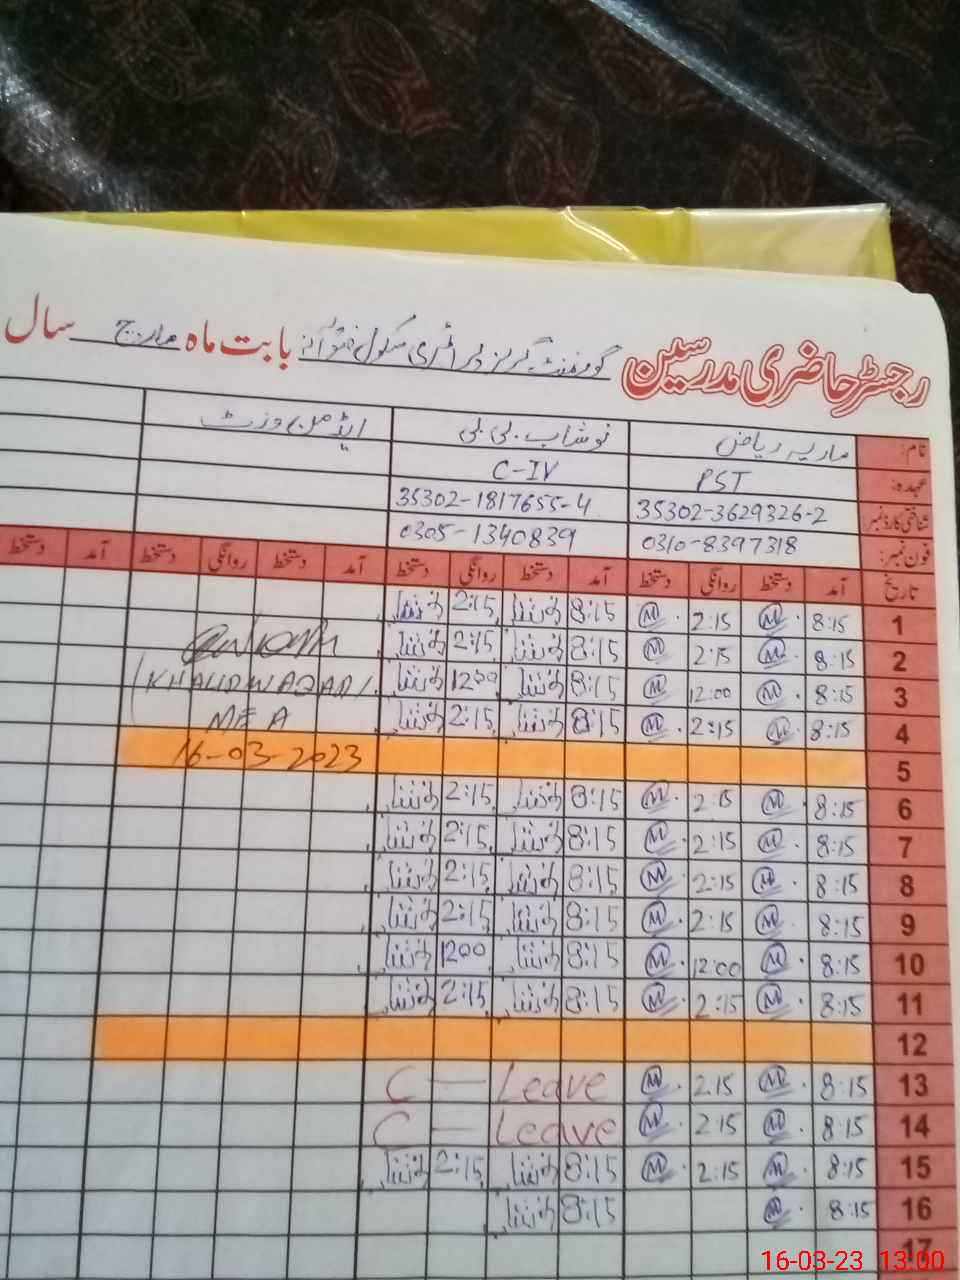 رجسٹر حاضری مدرسین گورنمنٹ گرلز پرائمری سکول بابت ماہ مارچ سال
نام: ماریہ ریاض نوشاب بی بی ایڈمن وزٹ
عہدہ: PST C-IV
شناختی کارڈ نمبر: 35302-3629326-2 35302-1817655-4
فون نمبر: 0310-8397318 0305-1340839
تاریخ آمد دستخط روانگی دستخط آمد دستخط روانگی دستخط آمد دستخط روانگی دستخط آمد دستخط
1 8:15 M 2:15 M 8:15 2:15
2 8:15 M 2:15 M 8:15 2:15
3 8:15 M 12:00 M 8:15 1200 (KHALID WAQAR)
4 8:15 M 2:15 M 8:15 2:15 MEA
5 16-03-2023
6 8:15 M 2:15 M 8:15 2:15
7 8:15 M 2:15 M 8:15 2:15
8 8:15 M 2:15 M 8:15 2:15
9 8:15 M 2:15 M 8:15 2:15
10 8:15 M 12:00 M 8:15 1200
11 8:15 M 2:15 M 8:15 2:15
12
13 8:15 M 2:15 M C — Leave
14 8:15 M 2:15 M C — Leave
15 8:15 M 2:15 M 8:15 2:15
16 8:15 M 8:15
17
16-03-23 13:00